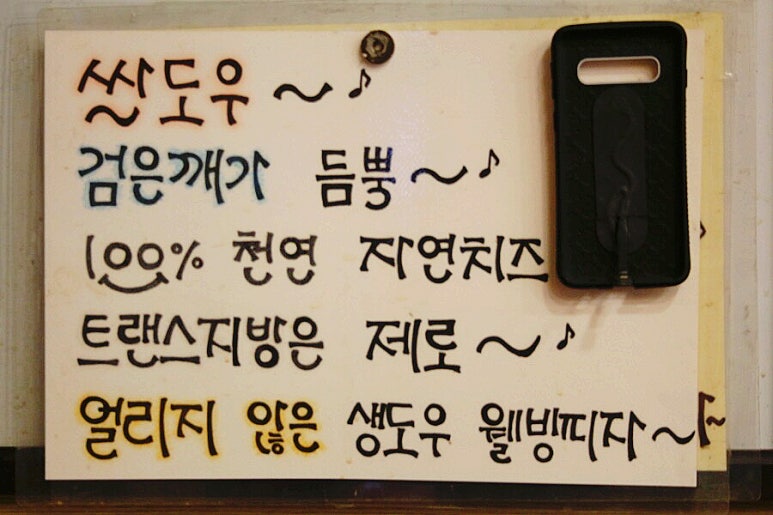 쌀도우~♪
검은깨가 듬뿍~♪
100% 천연 자연치즈
트랜스지방은 제로~♪
얼리지 않은 생도우 웰빙피자~